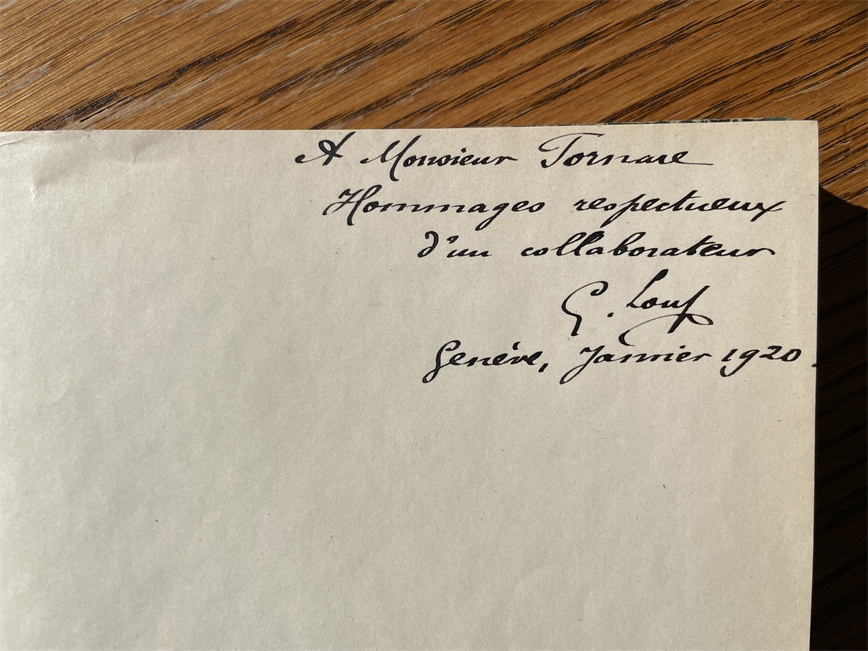 A Monsieur Tornare
Hommages respectueux
d'un collaborateur
G. Louf
Genève, Janvier 1920.